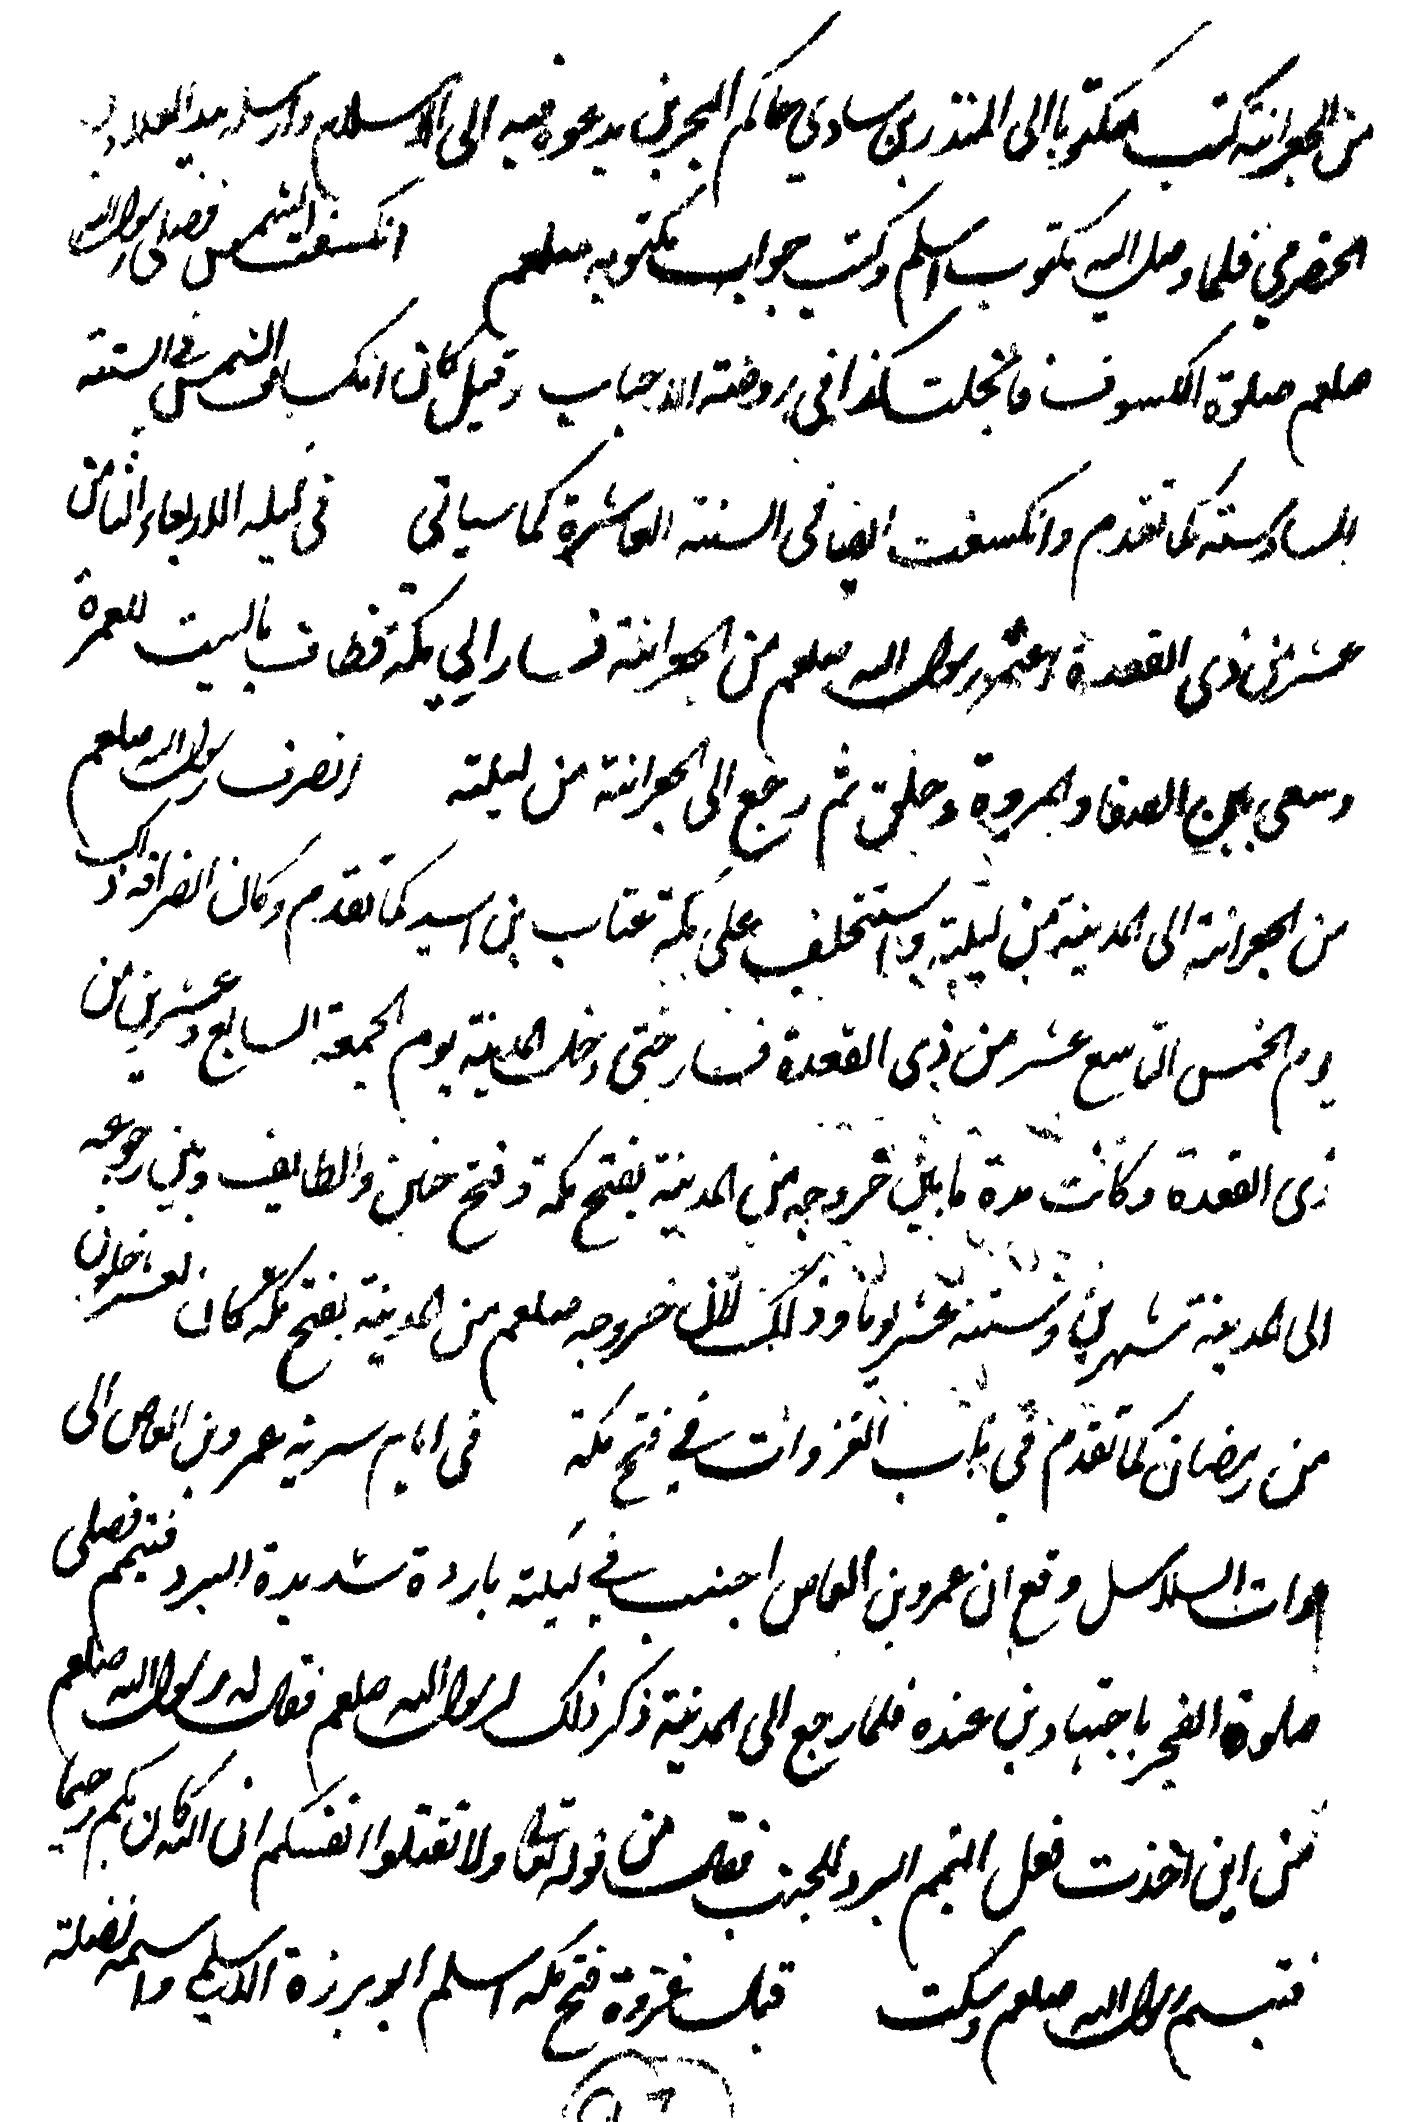 من الجعرانة كتب مكتوبا الى المنذر بن ساوي حاكم البحرين يدعوه فيه الى الاسلام وارسله بيد العلاء بن
الحضرمي فلما وصل اليه مكتوب اسلم وكتب جواب مكتوبه صلعم انكسفت الشمس فصلى رسول الله
صلعم صلوة الكسوف فانجلت كذا في روضة الاحباب وقيل كان انكساف الشمس في السنة
السادسة كما تقدم وانكسفت ايضا في السنة العاشرة كما سياتي في ليله الاربعاء الثامن
عشر من ذي القعدة اعتمر رسول الله صلعم من الجعرانة فسار الي مكة فطاف بالبيت للعمرة
وسعى بين الصفا والمروة وحلق ثم رجع الى الجعرانة من ليلته انصرف رسول الله صلعم
من الجعرانة الى المدينة من ليلته واستخلف على مكة عتاب بن اسيد كما تقدم وكان انصرافه
يوم الخمس التاسع عشر من ذي القعدة فسار حتى دخل المدينة يوم الجمعة السابع وعشرين من
ذي القعدة وكانت مدة ما بين خروجه من المدينة بفتح مكة وفتح حنين والطايف وبين رجوعه
الى المدينة شهرين وستة عشر يوما وذلك لان خروجه صلعم من المدينة بفتح مكة كان لعشر خلون
من رمضان كما تقدم في باب الغزوات في فتح مكة في ايام سرية عمرو بن العاص الى
ذات السلاسل وقع ان عمرو بن العاص اجنب في ليلة باردة شديدة البرد فتيمم فصلى
صلوة الفجر باجتهاد من عنده فلما رجع الى المدينة ذكر ذلك لرسول الله صلعم فقال له رسول الله صلعم
من اين اخذت فعل التيمم البرد للجنب فقال من قوله تعالى ولا تقتلوا انفسكم ان الله كان بكم رحيما
فتبسم رسول الله صلعم وسكت قبل غزوة فتح مكة اسلم ابو برزة الاسلمي واسمه نضلة